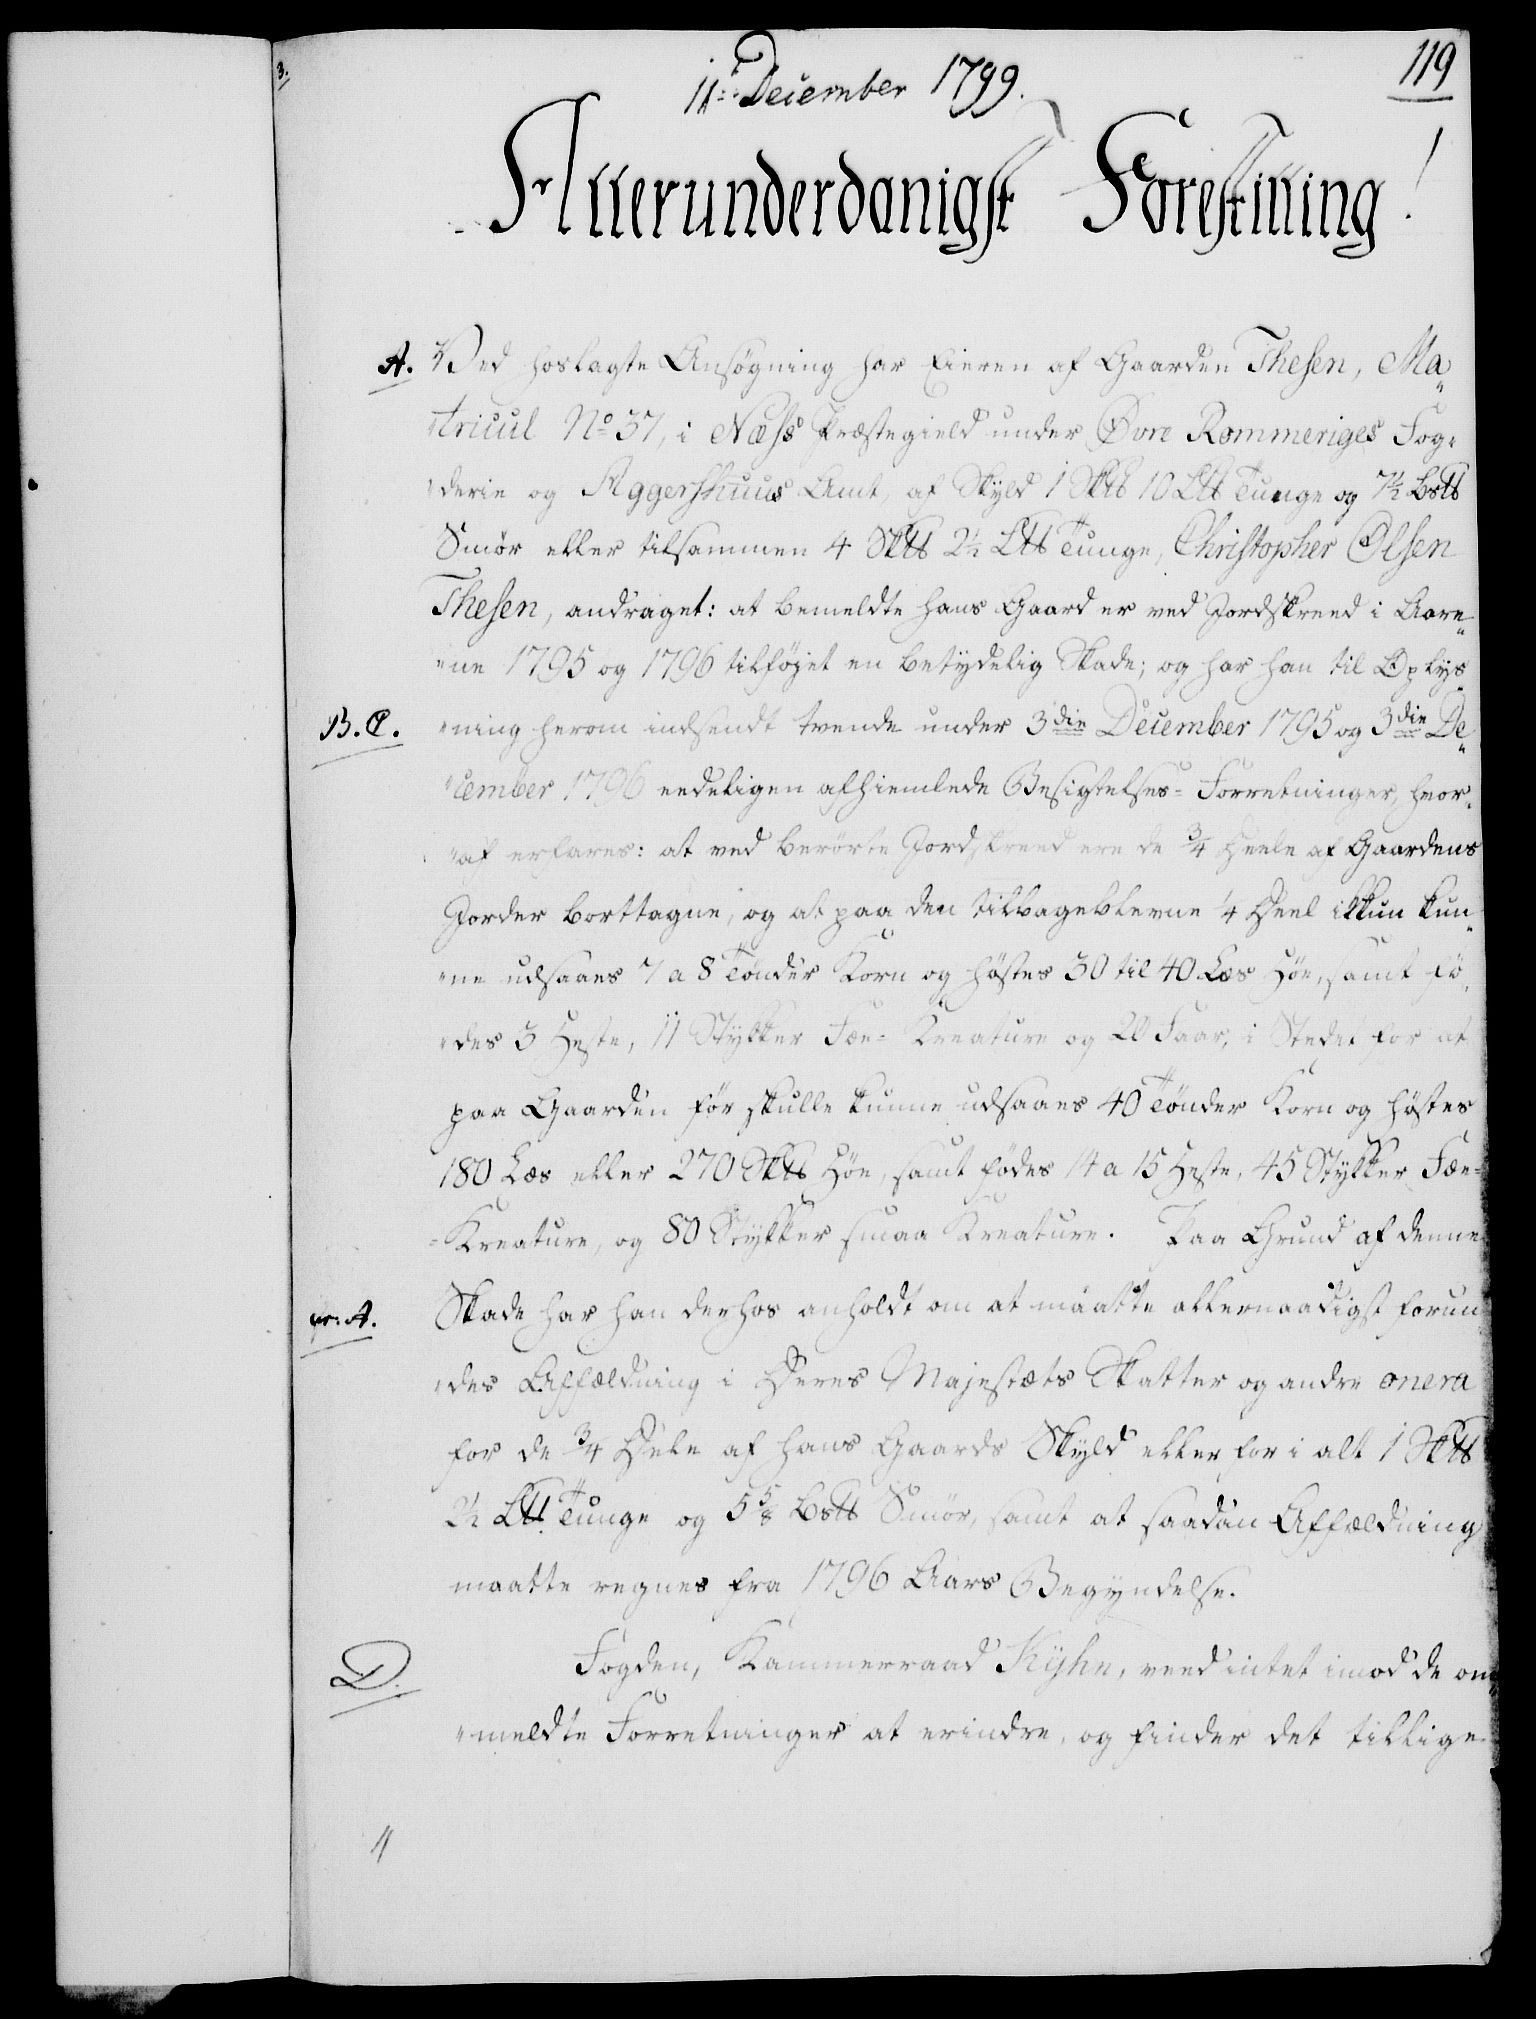 119
11te December 1799.
Allerunderdanigst Forestilling!
A. Ved hoslagte Ansøgning har Eieren af Gaarden Thesen, Ma„
„tricul No 37, i Næss Præstegield under Øvre Rommeriges Fog„
„derie og Aggershuus Amt, af Skyld 1 Sk℔ 10 L℔ Tunge og 7½ Bs℔
Smør eller tilsammen 4 Sk℔ 2½ L℔ Tunge, Christopher Olsen
Thesen, andraget: at bemeldte hans Gaard er ved Jordskreed i Aare„
„ne 1795 og 1796 tilføjet en betydelig Skade; og har han til Oplys„
B. C. „ning herom indsendt tvende under 3die December 1795 og 3die De„
„cember 1796 eedeligen afhiemlede Besigtelses-Forretninger, hvor„
„af erfares: at ved berørte Jordskreed ere de ¾ Deele af Gaardens
Jorder borttagne, og at paa den tilbageblevne ¼ Deel ikkun kun„
„ne udsaaes 7 a 8 Tønder Korn og høstes 30 til 40 Læs Høe, samt fø„
„des 3 Heste, 11 Stykker Fæe-Kreature og 20 Faar, i Stedet for at
paa Gaarden før skulle kunne udsaaes 40 Tønder Korn og høstes
180 Læs eller 270 Sk℔ Høe, samt fødes 14 a 15 Heste, 45 Stykker Fæe-
-Kreature, og 80 Stykker smaa Kreature. Paa Grund af denne
pr: A. Skade har han derhos anholdt om at maatte allernaadigst forun„
„des Affældning i Deres Majestæts Skatter og andre onera
for de ¾ Dele af hans Gaards Skyld eller for i alt 1 Sk℔
2½ L℔ Tunge og 5⅝ Bs℔ Smør, samt at saadan Affældning
maatte regnes fra 1796 Aars Begyndelse.
D. Fogden, Kammerraad Kyhn, veed intet imod de om„
„meldte Forretninger at erindre, og finder det tillige